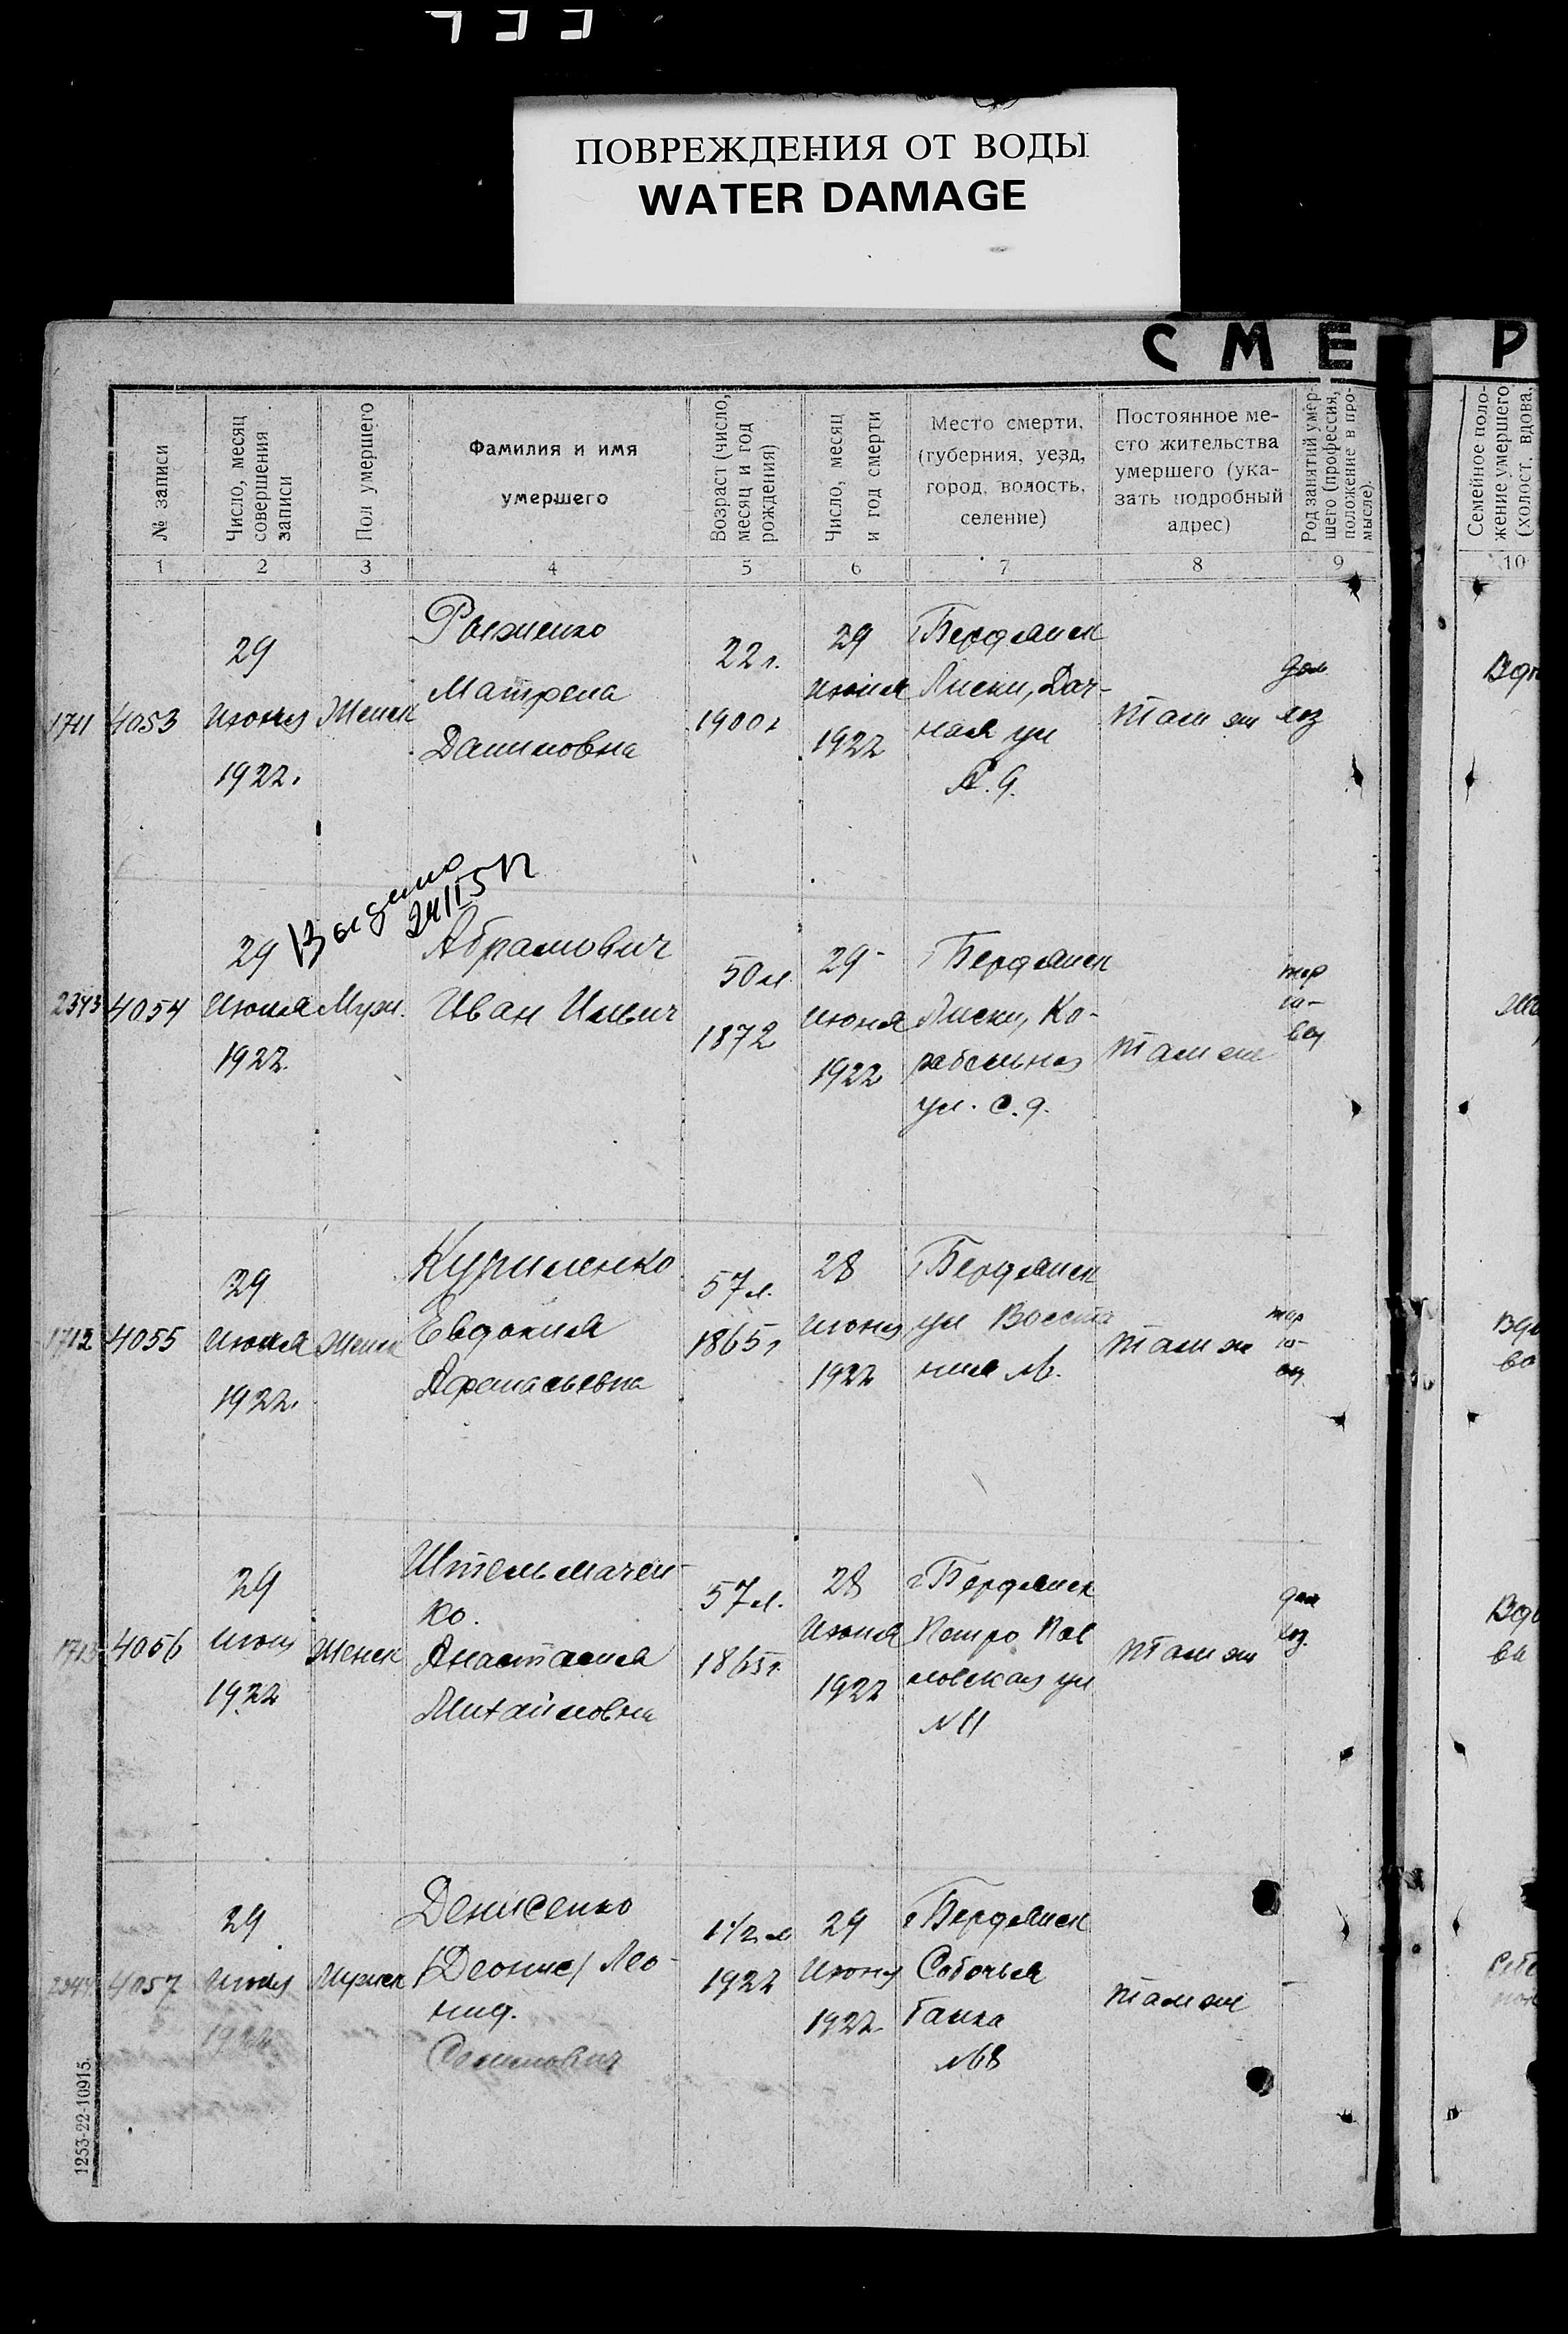 ПОВРЕЖДЕНИЯ ОТ ВОДЫ
WATER DAMAGE
С М Е Р
№ записи
Число, месяц
совершения
записи
Пол умершего
Фамилия и имя
умершего
Возраст (число,
месяц и год
рождения)
Число, месяц
и год смерти
Место смерти,
(губерния, уезд,
город, волость,
селение)
Постоянное ме-
сто жительства
умершего (ука-
зать подробный
адрес)
Род занятий умер-
шего (профессия,
положение в про-
мысле).
Семейное поло-
жение умершего
(холост, вдова,
1 2 3 4 5 6 7 8 9 10
1711 4053
29
июня
1922.
Женск
Рыженко
Матрена
Даниловна
22 г.
1900 г
29
июня
1922
г Бердянск
Лиски, Дач-
ная ул
С. д.
там же
дом
хоз
Вдо
Выдано
24/II 51
2343 4054
29
июня
1922.
Муж.
Абрамович
Иван Ильич
50 л
1872
29
июня
1922
г Бердянск
Лиски, Ко-
рабельная
ул. с. д.
там же
тор
го-
вец
1712 4055
29
июня
1922.
Женск
Куриленко
Евдокия
Афанасьевна
57 л.
1865 г
28
июня
1922
г Бердянск
ул Восста
ния №.
там же
тор
го-
вц
Вдо
ва
1713 4056
29
июня
1922
Женск
Штельмачен-
ко.
Анастасия
Михайловна
57 л.
1865 г.
28
июня
1922
г Бердянск
Петро Пав
ловская ул
№ 11
там же
дом
хоз.
Вдо
ва
2344 4057
29
июня
1922
Мужск
Денисенко
(Деонис) Лео-
нид.
Семенович
1 1/2 м
1922
29
июня
1922
г Бердянск
Собачья
балка
№ 68
там же
-
1253-22-10915.